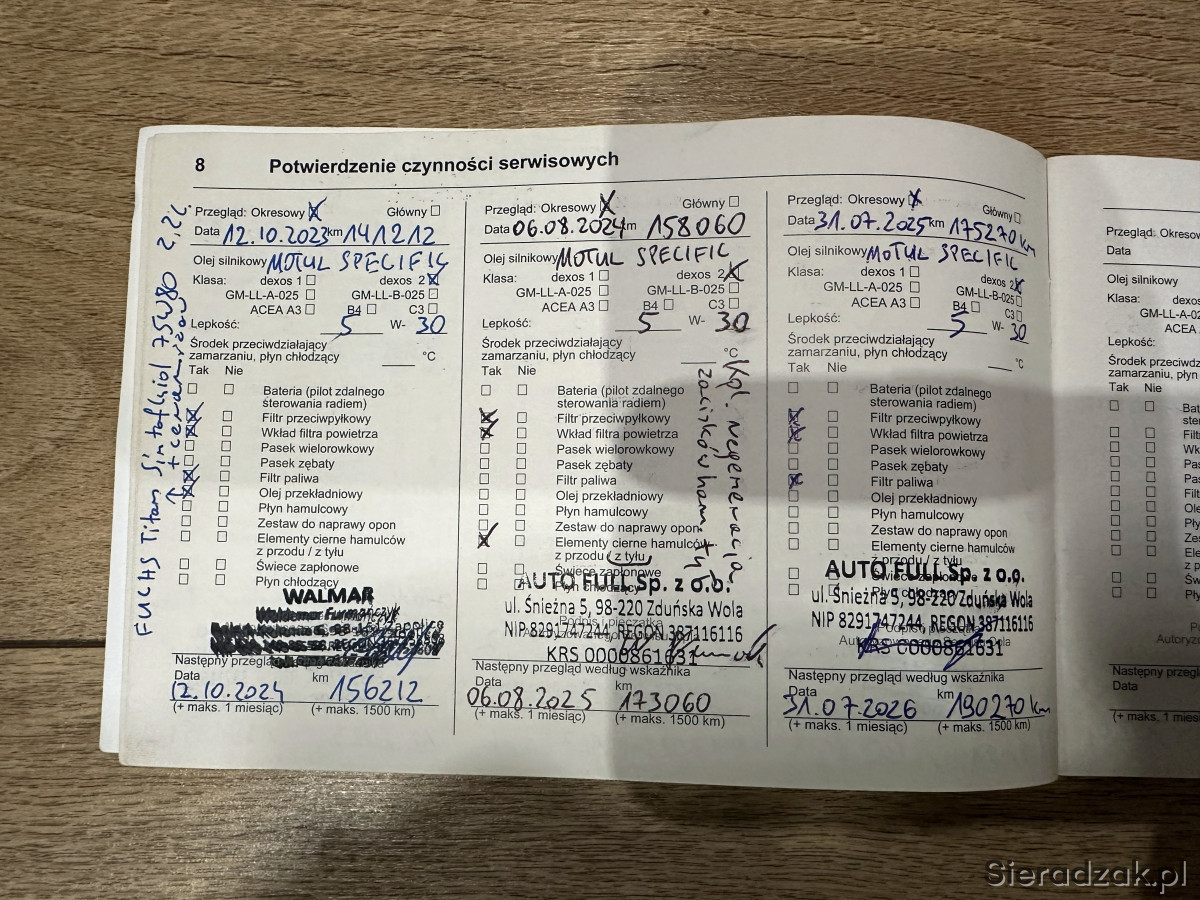 8 Potwierdzenie czynności serwisowych
Przegląd: Okresowy X Główny
Data 12.10.2023 km 141212
Olej silnikowy MOTUL SPECIFIC
Klasa: dexos 1 dexos 2 X
GM-LL-A-025 GM-LL-B-025
ACEA A3 B4 C3
Lepkość: 5 W- 30
Środek przeciwdziałający
zamarzaniu, płyn chłodzący °C
Tak Nie
Bateria (pilot zdalnego
sterowania radiem)
Filtr przeciwpyłkowy
Wkład filtra powietrza
Pasek wielorowkowy
Pasek zębaty
Filtr paliwa
Olej przekładniowy
Płyn hamulcowy
Zestaw do naprawy opon
Elementy cierne hamulców
z przodu / z tyłu
Świece zapłonowe
Płyn chłodzący
WALMAR
Waldemar Furmańczyk
Następny przegląd według wskaźnika
Data km
12.10.2024 156212
(+ maks. 1 miesiąc) (+ maks. 1500 km)
FUCHS Titan Sintofluid 75W80 2,2L
Przegląd: Okresowy X Główny
Data 06.08.2024 km 158060
Olej silnikowy MOTUL SPECIFIC
Klasa: dexos 1 dexos 2 X
GM-LL-A-025 GM-LL-B-025
ACEA A3 B4 C3
Lepkość: 5 W- 30
Środek przeciwdziałający
zamarzaniu, płyn chłodzący °C
Tak Nie
Bateria (pilot zdalnego
sterowania radiem)
Filtr przeciwpyłkowy
Wkład filtra powietrza
Pasek wielorowkowy
Pasek zębaty
Filtr paliwa
Olej przekładniowy
Płyn hamulcowy
Zestaw do naprawy opon
Elementy cierne hamulców
z przodu / z tyłu
Świece zapłonowe
Płyn chłodzący
Kpl. regeneracja
zacisków ham. tył
AUTO FULL Sp. z o.o.
ul. Śnieżna 5, 98-220 Zduńska Wola
Podpis i pieczątka
NIP 8291747244, REGON 387116116
KRS 0000861631
Następny przegląd według wskaźnika
Data km
06.08.2025 173060
(+ maks. 1 miesiąc) (+ maks. 1500 km)
Przegląd: Okresowy X Główny
Data 31.07.2025 km 175270 km
Olej silnikowy MOTUL SPECIFIC
Klasa: dexos 1 dexos 2 X
GM-LL-A-025 GM-LL-B-025
ACEA A3 B4 C3
Lepkość: 5 W- 30
Środek przeciwdziałający
zamarzaniu, płyn chłodzący °C
Tak Nie
Bateria (pilot zdalnego
sterowania radiem)
Filtr przeciwpyłkowy
Wkład filtra powietrza
Pasek wielorowkowy
Pasek zębaty
Filtr paliwa
Olej przekładniowy
Płyn hamulcowy
Zestaw do naprawy opon
Elementy cierne hamulców
z przodu / z tyłu
Świece zapłonowe
AUTO FULL Sp. z o.o.
ul. Śnieżna 5, 98-220 Zduńska Wola
NIP 8291747244, REGON 387116116
KRS 0000861631
Następny przegląd według wskaźnika
Data km
31.07.2026 190270 km
(+ maks. 1 miesiąc) (+ maks. 1500 km)
Przegląd: Okresow
Data
Olej silnikowy
Klasa: dexos
GM-LL-A-02
ACEA
Lepkość:
Środek przeciwdz
zamarzaniu, płyn
Tak Nie
Bat
ster
Filtr
Wkł
Pas
Pas
Filtr
Ole
Pły
Zes
Ele
z p
Św
Pły
Autoryzo
Następny przeglą
Data
(+ maks. 1 miesi
Sieradzak.pl